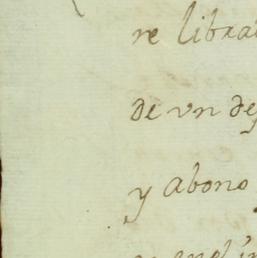 re libra
de vn de
y abono